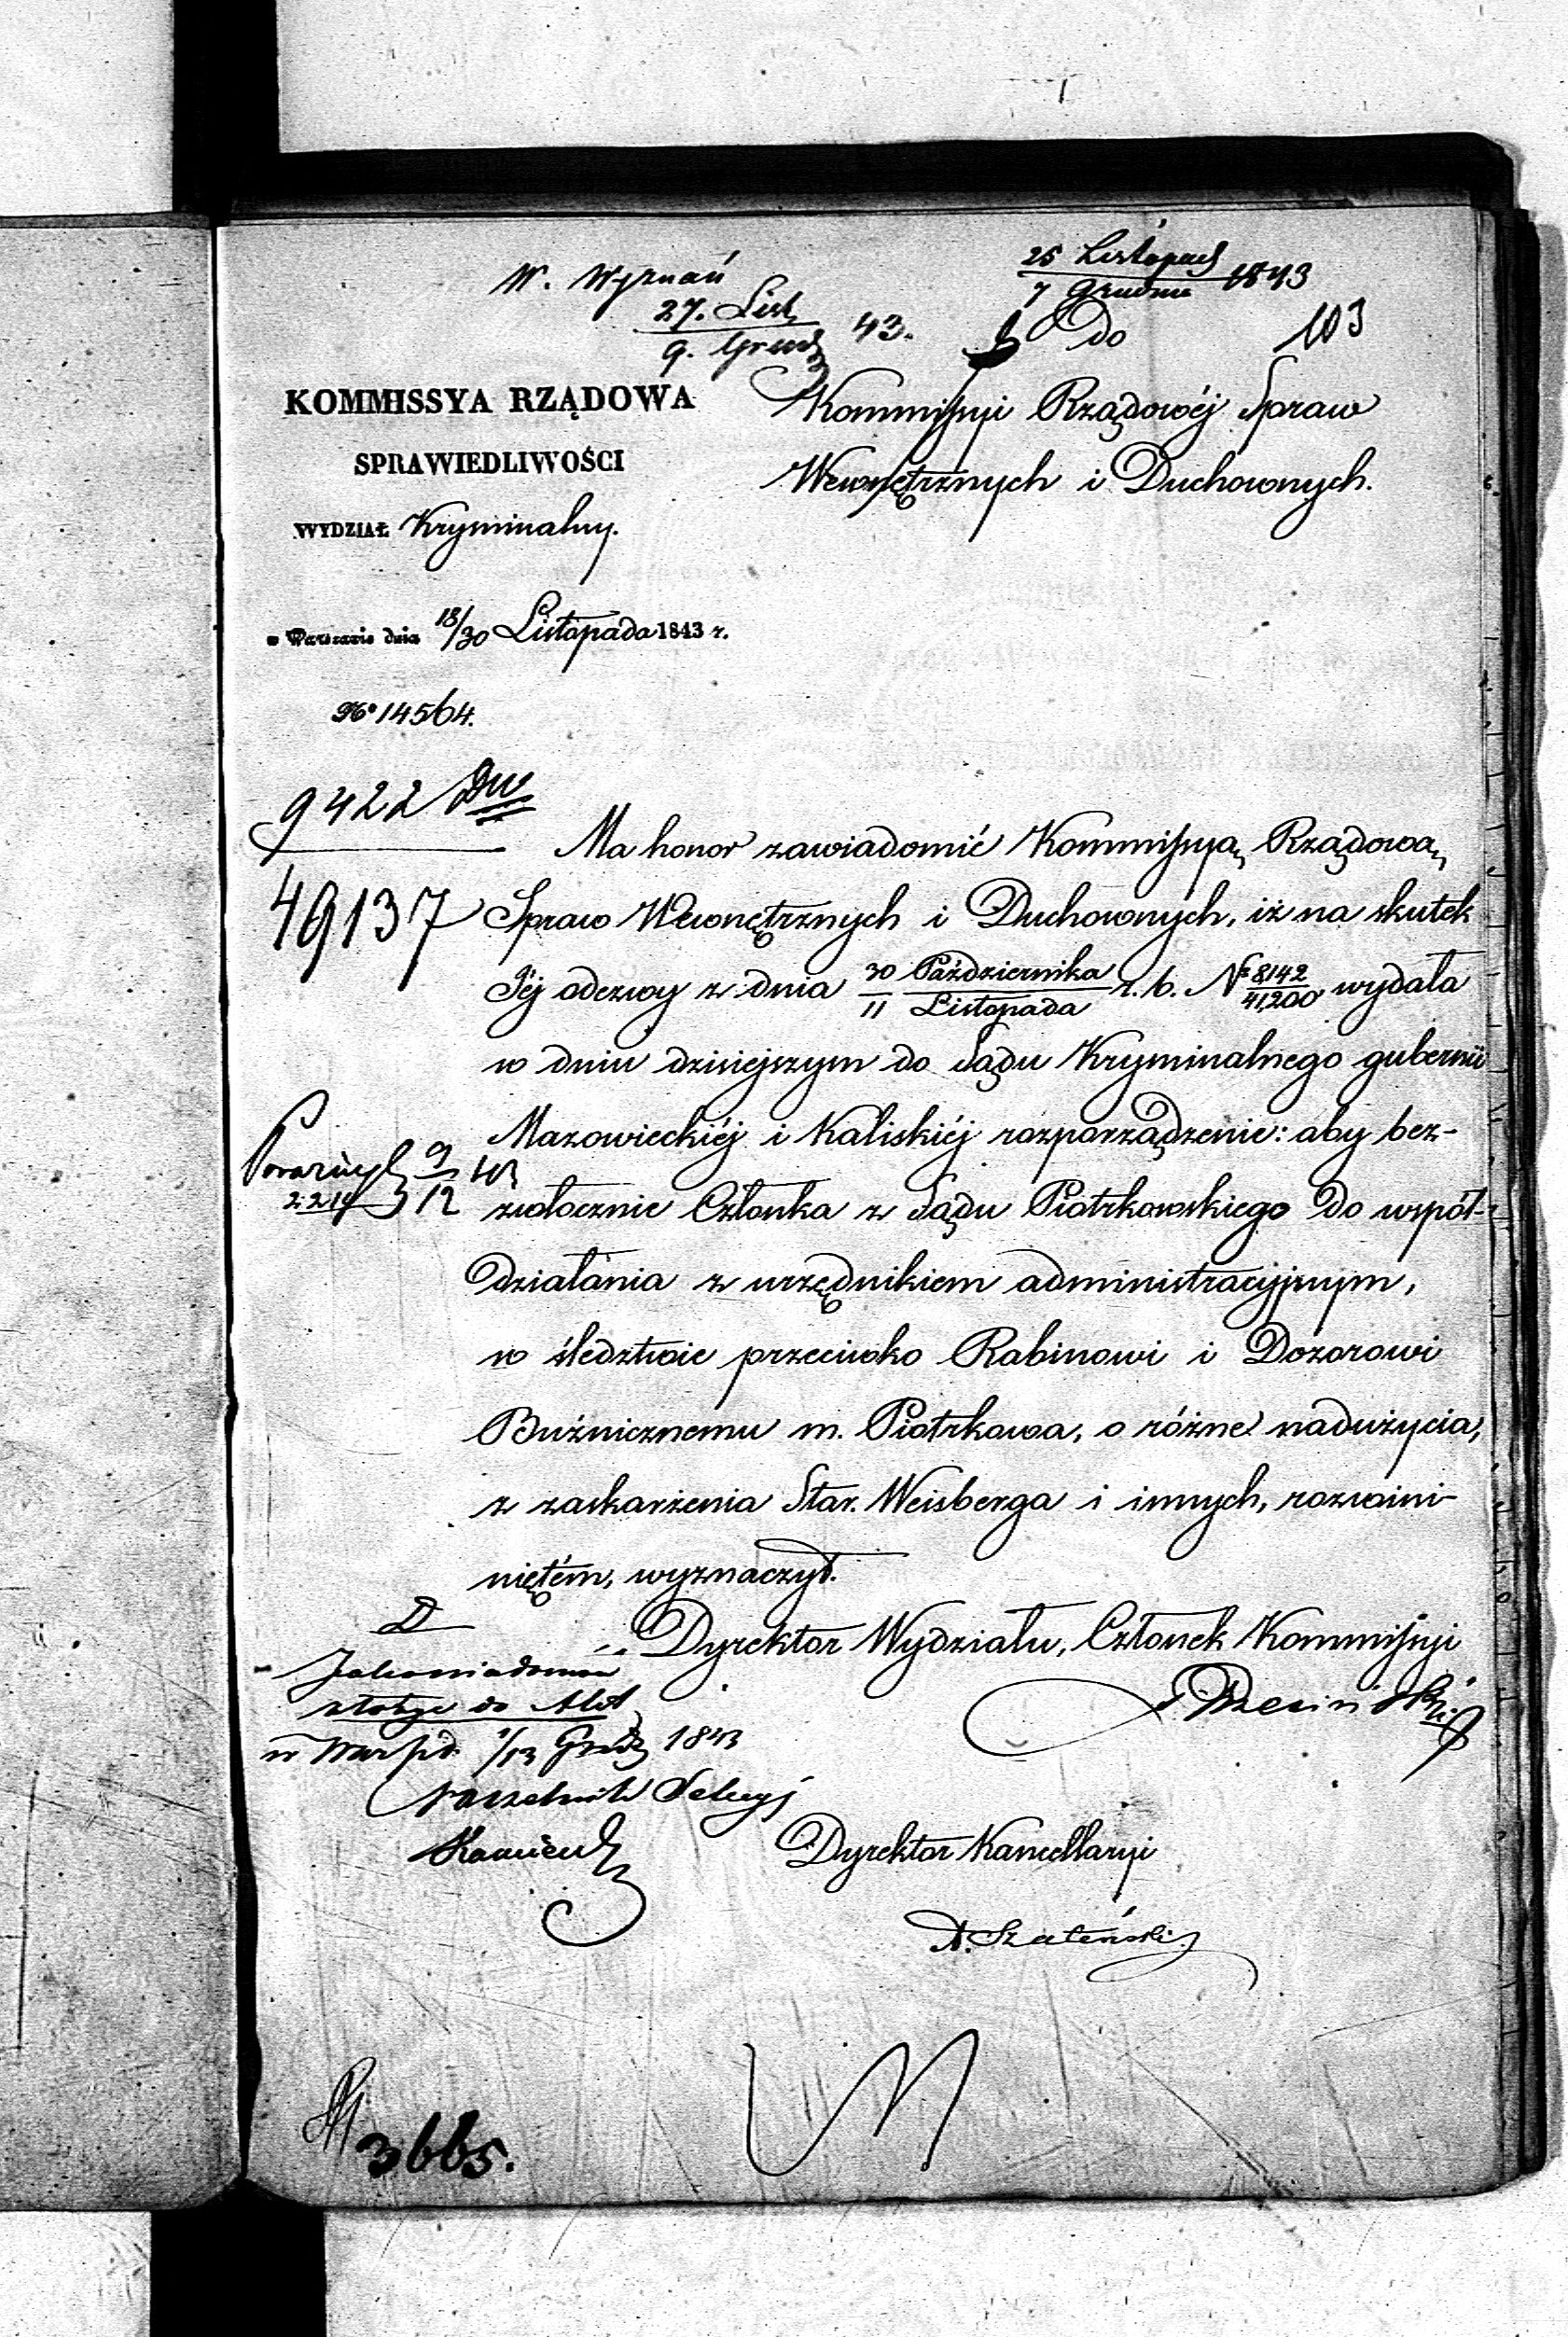 W. Wyznań
27. List
9. Grud 43.
25 Listopad
7 Grudnia 1843
103
Do
Kommissyi Rządowéj Spraw
Wewnętrznych i Duchownych.
KOMMISSYA RZĄDOWA
SPRAWIEDLIWOŚCI
WYDZIAŁ Kryminalny.
w Warszawie dnia 18/30 Listopada 1843 r.
No 14564.
9422
49137
Ma honor zawiadomić Kommissyą Rządową
Spraw Wewnętrznych i Duchownych, iż na skutek
Jéj odezwy z dnia 30 Października / 11 Listopada r. b. No 8142/41,200 wydała
w dniu dzisiejszym do Sądu Kryminalnego gubernii
Mazowieckiéj i Kaliskiéj rozporządzenie: aby bez-
zwłocznie Członka z Sądu Piotrkowskiego do współ-
działania z urzędnikiem administracyjnym,
w śledztwie przeciwko Rabinowi i Dozorowi
Bużnicznemu m. Piotrkowa, o różne nadużycia,
z zaskarżenia Star. Weisberga i innych, rozwini-
niętém, wyznaczył.
9/12 43
Dyrektor Wydziału, Członek Kommissyi
D
Jako wiadomość
złożyć do Akt
w Warsz d. 1/13 Grudz 1843
Naczelnik Sekcyi
Dyrektor Kancellaryi
3665.